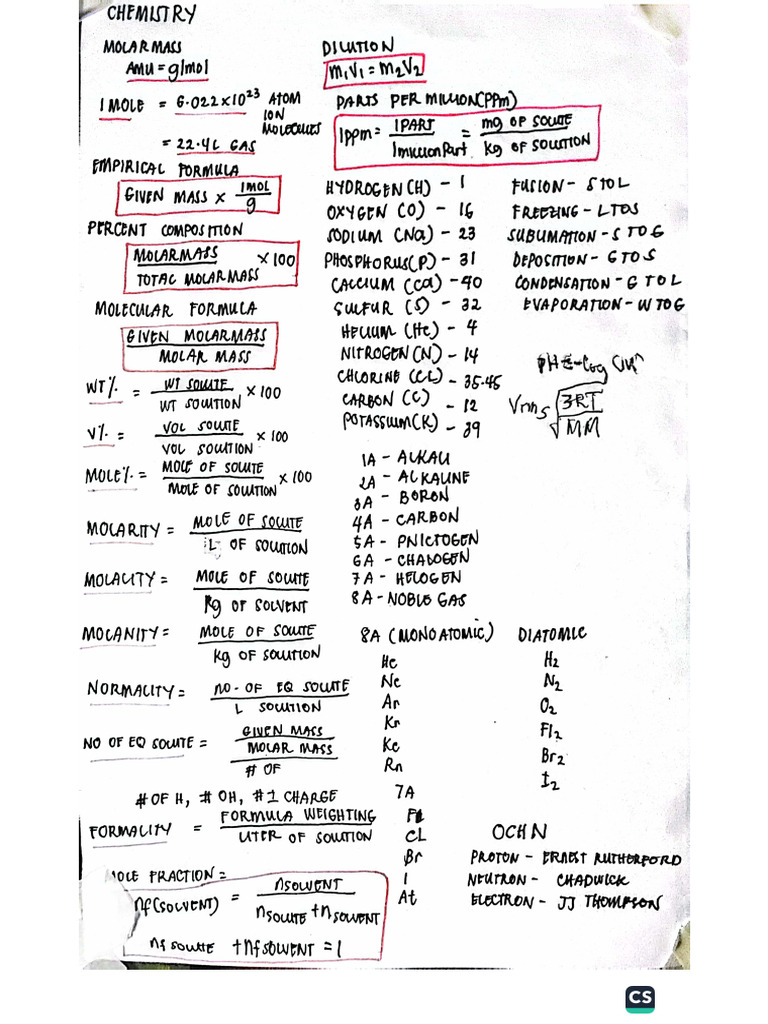 CHEMISTRY
MOLAR MASS
AMU = g/mol
1 MOLE = 6.022 x 10^23 ATOM
ION
MOLECULES
= 22.4L GAS
EMPIRICAL FORMULA
GIVEN MASS x 1mol/g
PERCENT COMPOSITION
MOLAR MASS / TOTAL MOLAR MASS x 100
MOLECULAR FORMULA
GIVEN MOLAR MASS / MOLAR MASS
WT% = WT SOLUTE / WT SOLUTION x 100
V% = VOL SOLUTE / VOL SOLUTION x 100
MOLE% = MOLE OF SOLUTE / MOLE OF SOLUTION x 100
MOLARITY = MOLE OF SOLUTE / L OF SOLUTION
MOLALITY = MOLE OF SOLUTE / Kg OF SOLVENT
MOLANITY = MOLE OF SOLUTE / Kg OF SOLUTION
NORMALITY = NO. OF EQ SOLUTE / L SOLUTION
NO OF EQ SOLUTE = GIVEN MASS / MOLAR MASS / # OF
# OF H, # OH, #1 CHARGE
FORMALITY = FORMULA WEIGHTING / LITER OF SOLUTION
MOLE FRACTION =
nf(SOLVENT) = nSOLVENT / nSOLUTE + nSOLVENT
nf SOLUTE + nf SOLVENT = 1
DILUTION
M1V1 = M2V2
PARTS PER MILLION (PPm)
1ppm = 1 PART / 1 million Part = mg OF SOLUTE / kg OF SOLUTION
HYDROGEN (H) - 1
OXYGEN (O) - 16
SODIUM (Na) - 23
PHOSPHORUS (P) - 31
CALCIUM (Ca) - 40
SULFUR (S) - 32
HELIUM (He) - 4
NITROGEN (N) - 14
CHLORINE (CL) - 35.45
CARBON (C) - 12
POTASSIUM (K) - 39
FUSION - S TO L
FREEZING - L TO S
SUBLIMATION - S TO G
DEPOSITION - G TO S
CONDENSATION - G TO L
EVAPORATION - W TO G
Vrms √3RT / √MM
1A - ALKALI
2A - ALKALINE
3A - BORON
4A - CARBON
5A - PNICTOGEN
6A - CHALOGEN
7A - HELOGEN
8A - NOBLE GAS
8A (MONOATOMIC)
He
Ne
Ar
Kr
Ke
Rn
7A
CL
Br
I
At
DIATOMIC
H2
N2
O2
Fl2
Br2
I2
OCHN
PROTON - ERNEST RUTHERFORD
NEUTRON - CHADWICK
ELECTRON - JJ THOMPSON
CS